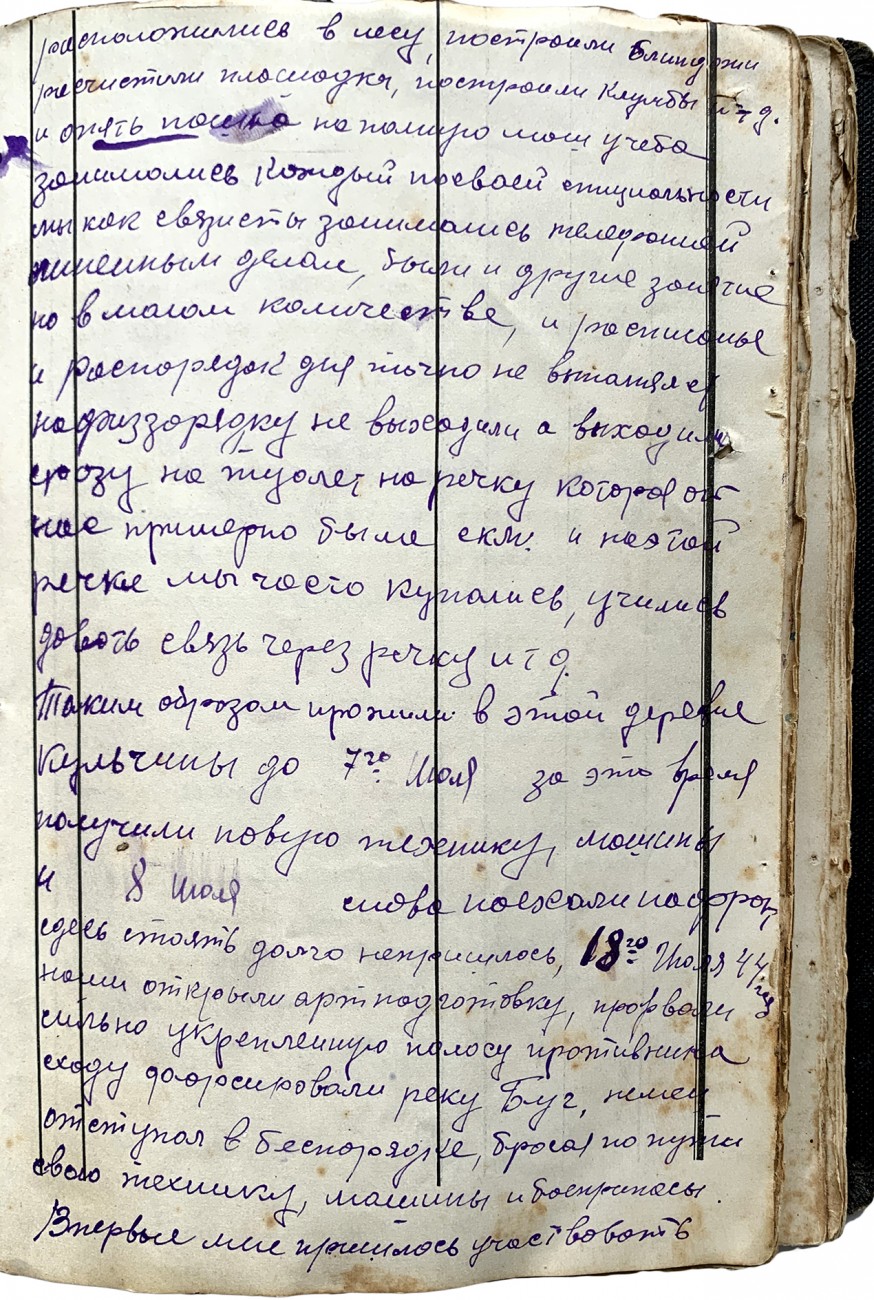 расположились в лесу, построили блиндажи
расчистили площадка, построили клумбы и т д.
и опять пошла на полную мощ учеба
занимались каждый посваей специальности
мы как связисты занимались телефонной
линейным делом, были и другие занятие
но в малом количестве, и расписанье
и распорядок дня точно не выполнялся
нафиззорядку не выходили а выходили
сразу на туолет на речку которая от
нас примерно была екм. и наэтой
речке мы часто купались, учились
довать связь через речку и т д.
Таким образом прожили в этой деревне
Кульчины до 7го Июля за это время
получили новую технику, машины
и 8 Июля снова поехали на фронт
сдесь стоять долго непришлось, 18го Июля 44 года
наши открыли артподготовку, прорвали
сильно укрепленную полосу противника
сходу форсировали реку Буг, немец
отступал в беспорядке, бросая по пути
свою технику, машины и боеприпасы.
Впервые мне пришлось участвовать